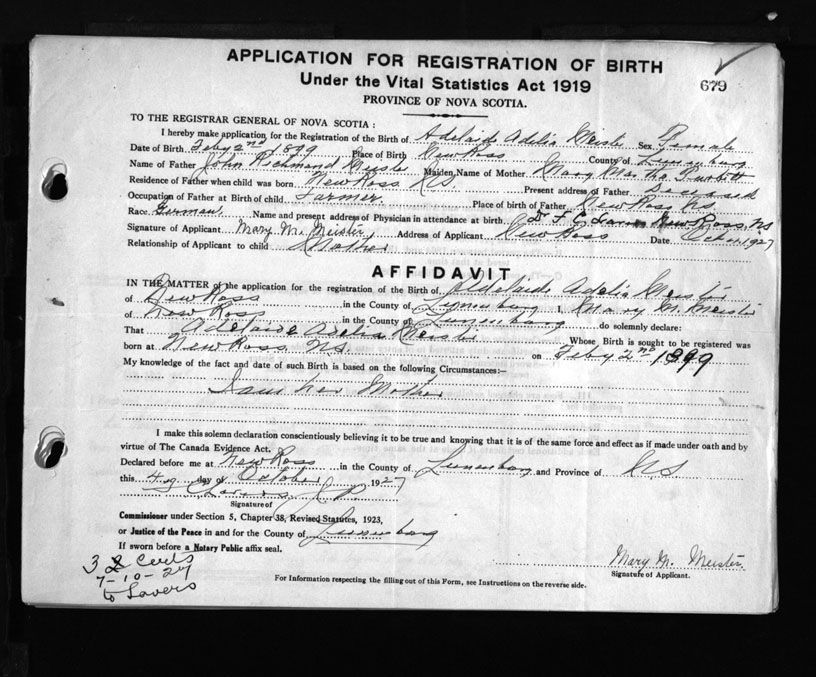 APPLICATION FOR REGISTRATION OF BIRTH
Under the Vital Statistics Act 1919
679
PROVINCE OF NOVA SCOTIA.
TO THE REGISTRAR GENERAL OF NOVA SCOTIA :
I hereby make application for the Registration of the Birth of Adelaide Adelia Meister Sex Female
Date of Birth Feby 2nd 1899 Place of Birth New Ross County of Lunenburg
Name of Father John Richmond Meister Maiden Name of Mother Mary Martha
Residence of Father when child was born New Ross N.S. Present address of Father Deceased
Occupation of Father at Birth of child Farmer Place of birth of Father New Ross N.S.
Race German Name and present address of Physician in attendance at birth Dr New Ross, N.S
Signature of Applicant Mary M. Meister Address of Applicant New Ross Date Oct 1927
Relationship of Applicant to child Mother
AFFIDAVIT
IN THE MATTER of the application for the registration of the Birth of Adelaide Adelia Meister
of New Ross in the County of Lunenburg I, Mary M. Meister
of New Ross in the County of Lunenburg do solemnly declare:
That Adelaide Adelia Meister Whose Birth is sought to be registered was
born at New Ross N.S. on Feby 2nd 1899
My knowledge of the fact and date of such Birth is based on the following Circumstances:—
I am her Mother
I make this solemn declaration conscientiously believing it to be true and knowing that it is of the same force and effect as if made under oath and by
virtue of The Canada Evidence Act.
Declared before me at New Ross in the County of Lunenburg and Province of N.S
this 4 day of October 1927
Signature of J.P.
Commissioner under Section 5, Chapter 38, Revised Statutes, 1923,
or Justice of the Peace in and for the County of Lunenburg
If sworn before a Notary Public affix seal.
Mary M. Meister
Signature of Applicant.
3 Certs
7-10-27
to Lavers
For Information respecting the filling out of this Form, see Instructions on the reverse side.